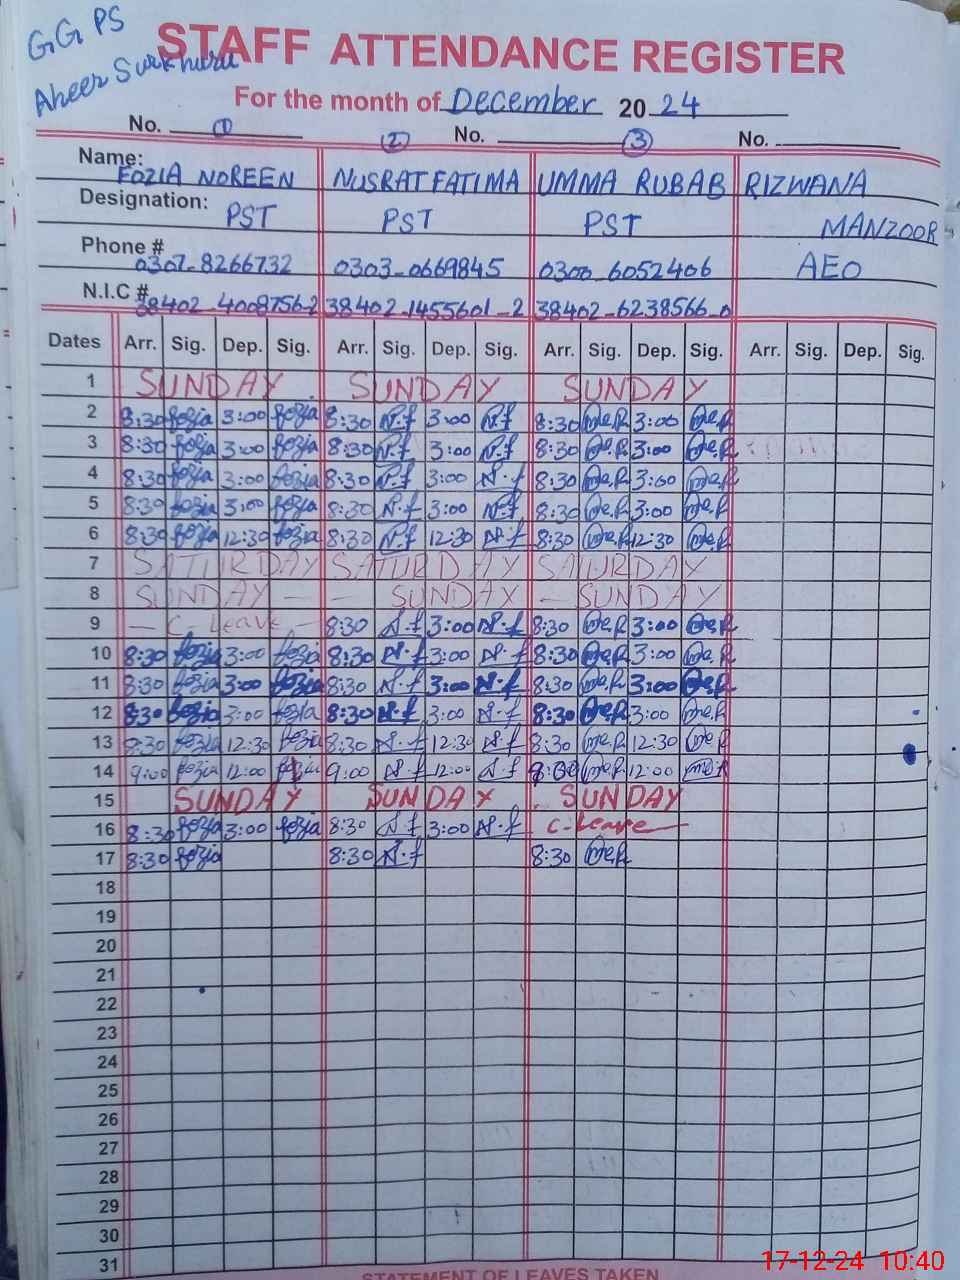 GGPS
Aheer Surkhuru
STAFF ATTENDANCE REGISTER
For the month of December 2024
No. 1 No. 2 3 No.
Name: FOZIA NOREEN NUSRAT FATIMA UMMA RUBAB RIZWANA MANZOOR
Designation: PST PST PST AEO
Phone # 0307-8266732 0303-0669845 0300-6052406
N.I.C # 38402-4008756-2 38402-1455601-2 38402-6238566-0
Dates Arr. Sig. Dep. Sig. Arr. Sig. Dep. Sig. Arr. Sig. Dep. Sig. Arr. Sig. Dep. Sig.
1 SUNDAY SUNDAY SUNDAY
2 8:30 fozia 3:00 fozia 8:30 N.f 3:00 N.f 8:30 3:00
3 8:30 fozia 3:00 fozia 8:30 N.f 3:00 N.f 8:30 3:00
4 8:30 fozia 3:00 fozia 8:30 N.f 3:00 N.f 8:30 3:00
5 8:30 fozia 3:00 fozia 8:30 N.f 3:00 N.f 8:30 3:00
6 8:30 fozia 12:30 fozia 8:30 N.f 12:30 N.f 8:30 12:30
7 SATURDAY SATURDAY SATURDAY
8 SUNDAY - - SUNDAY - SUNDAY
9 - C-Leave - 8:30 N.f 3:00 N.f 8:30 3:00
10 8:30 fozia 3:00 fozia 8:30 N.f 3:00 N.f 8:30 3:00
11 8:30 fozia 3:00 fozia 8:30 N.f 3:00 N.f 8:30 3:00
12 8:30 fozia 3:00 fozia 8:30 N.f 3:00 N.f 8:30 3:00
13 8:30 fozia 12:30 fozia 8:30 N.f 12:30 N.f 8:30 12:30
14 9:00 fozia 12:00 fozia 9:00 N.f 12:00 N.f 9:00 12:00
15 SUNDAY SUNDAY SUNDAY
16 8:30 fozia 3:00 fozia 8:30 N.f 3:00 N.f C-Leave
17 8:30 fozia 8:30 N.f 8:30
18
19
20
21
22
23
24
25
26
27
28
29
30
31
STATEMENT OF LEAVES TAKEN
17-12-24 10:40